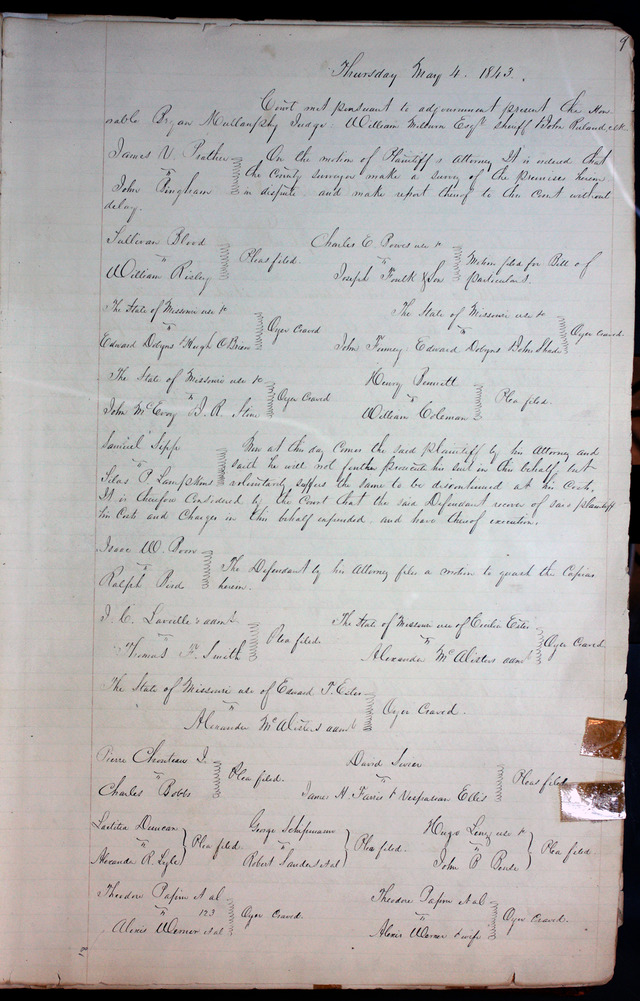 9
Thursday May 4. 1843.
Court met pursuant to adjournment present the Hon
orable Bryan Mullanphy Judge. William Milburn Esqr. sheriff & John Ruland, clk
James V. Prather
vs
John Bingham
On the motion of Plaintiff's Attorney It is ordered that
the County surveyor make a survey of the premises herein
in dispute and make report thereof to this Court without
delay.
Sullivan Blood
vs
William Risley
Pleas filed.
Charles E. use to
vs
Joseph Foulk & Son
Motion filed for Bill of
particulars.
The State of Missouri use to
vs
Edward Dobyns & Hugh O'Brien
Oyer Craved
The State of Missouri use to
vs
John Finney Edward Dobyns & John Shade
Oyer Craved.
The State of Missouri use to
vs
John McEvoy B. R.
Oyer Craved
Henry
vs
William Coleman
Plea filed.
Samuel
vs
Silas P. Lampkins
Now at this day Comes the said plaintiff by his Attorney and
saith he will not further prosecute his suit in this behalf but
voluntarily suffers the same to be discontinued at his Costs.
It is therefore Considered by the Court that the said Defendant recover of said plaintiff
his Costs and Charges in this behalf expended and have thereof execution.
Isaac W.
vs
Ralph
The Defendant by his Attorney files a motion to quash the Capias
herein.
J. C. Laveille's admr.
vs
Thomas F. Smith
Plea filed.
The State of Missouri use of Ester
vs
Alexander McAlisters admr
Oyer Craved.
The State of Missouri use of Edward T. Ester
vs
Alexander McAlisters admr
Oyer Craved.
Pierre Chouteau Jr.
vs
Charles Bobbs
Plea filed.
David
vs
James H. Farris & Vespasian Ellis
Pleas filed
Laetitia Duncan
vs
Alexander R. Lyle
Plea filed.
George Schupmann
vs
Robert Sanders et al
Plea filed.
Hugo use to
vs
John B.
Plea filed.
Theodore Papin et al
vs 123
Alexis Werner et al
Oyer Craved.
Theodore Papin et al.
vs
Alexis Werner & wife
Oyer Craved.